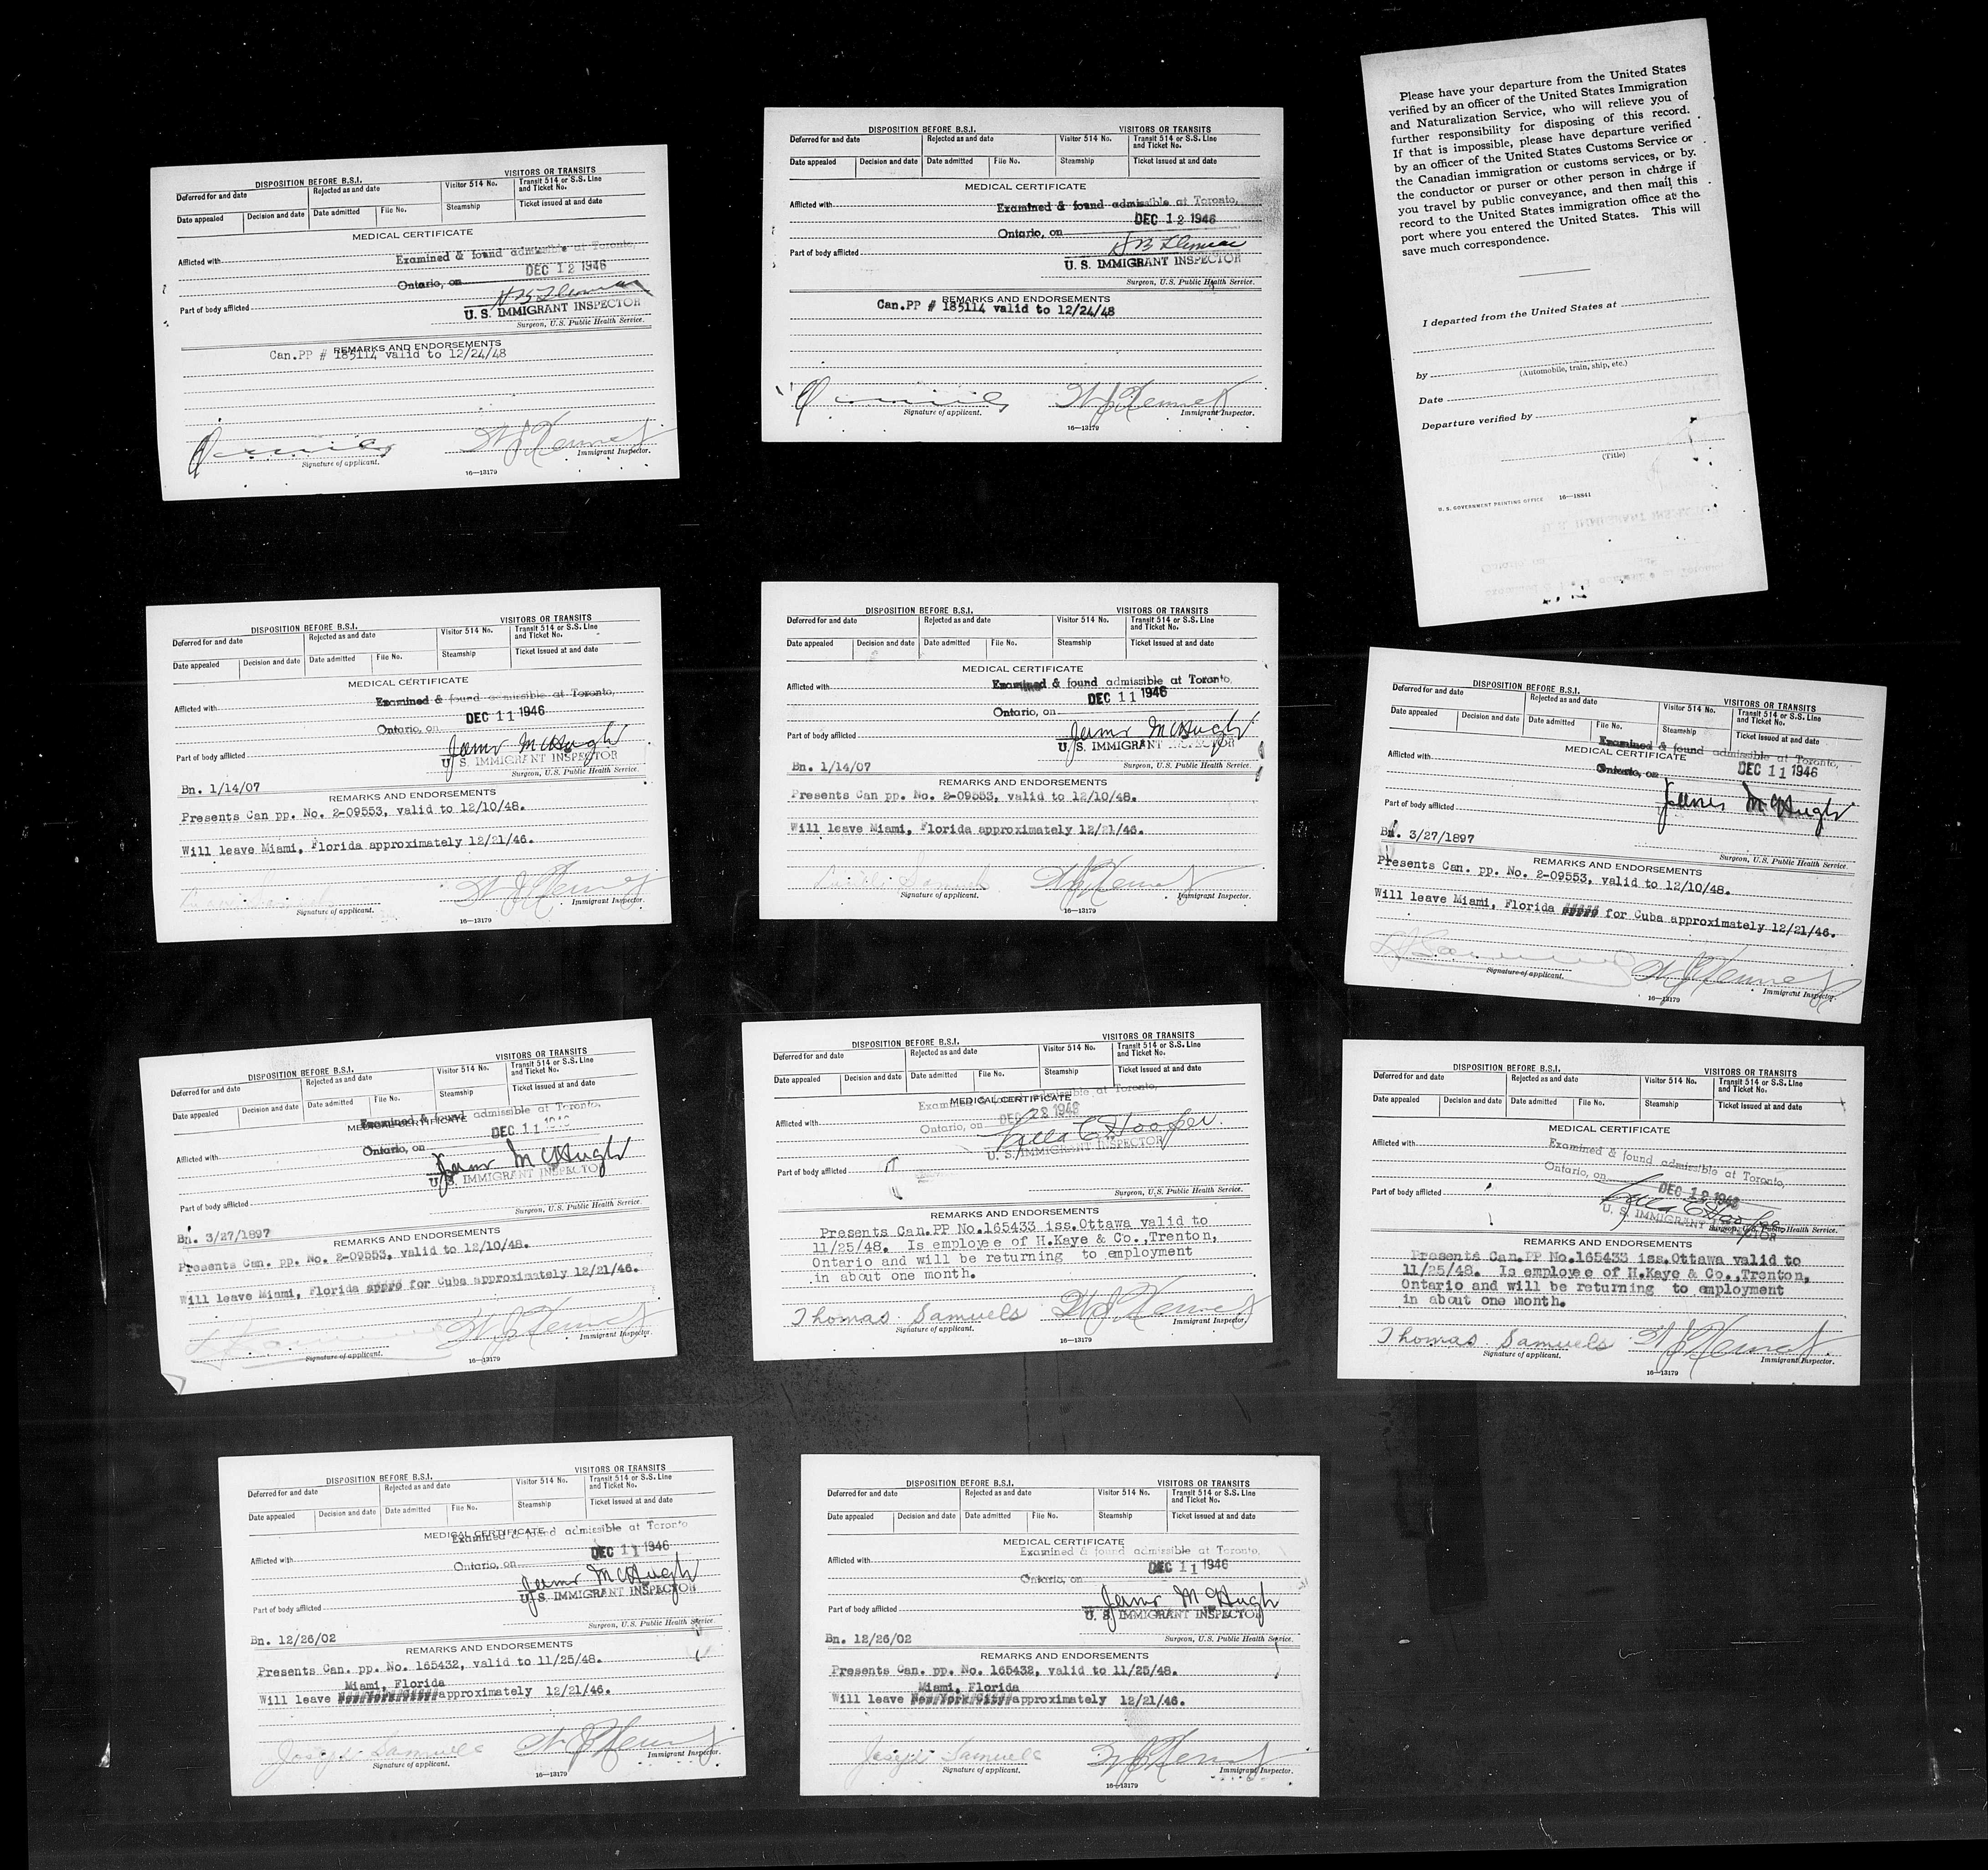 DISPOSITION BEFORE B.S.I.
VISITORS OR TRANSITS
Deferred for and date
Rejected as and date
Visitor 514 No.
Transit 514 or S.S. Line and Ticket No.
Date appealed
Decision and date
Date admitted
File No.
Steamship
Ticket issued at and date
MEDICAL CERTIFICATE
Afflicted with
Examined & found admissible at Toronto,
DEC 12 1946
Ontario, on
Part of body afflicted
U. S. IMMIGRANT INSPECTOR
Surgeon, U.S. Public Health Service.
REMARKS AND ENDORSEMENTS
Can.PP # 185114 valid to 12/24/48
Signature of applicant.
Immigrant Inspector.
16—13179
DISPOSITION BEFORE B.S.I.
VISITORS OR TRANSITS
Deferred for and date
Rejected as and date
Visitor 514 No.
Transit 514 or S.S. Line and Ticket No.
Date appealed
Decision and date
Date admitted
File No.
Steamship
Ticket issued at and date
MEDICAL CERTIFICATE
Afflicted with
Examined & found admissible at Toronto,
DEC 12 1946
Ontario, on
Part of body afflicted
U. S. IMMIGRANT INSPECTOR
Surgeon, U.S. Public Health Service.
REMARKS AND ENDORSEMENTS
Can.PP # 185114 valid to 12/24/48
Signature of applicant.
Immigrant Inspector.
16—13179
Please have your departure from the United States
verified by an officer of the United States Immigration
and Naturalization Service, who will relieve you of
further responsibility for disposing of this record.
If that is impossible, please have departure verified
by an officer of the United States Customs Service or
the Canadian immigration or customs services, or by
the conductor or purser or other person in charge if
you travel by public conveyance, and then mail this
record to the United States immigration office at the
port where you entered the United States. This will
save much correspondence.
I departed from the United States at
by
(Automobile, train, ship, etc.)
Date
Departure verified by
(Title)
U. S. GOVERNMENT PRINTING OFFICE 16—18841
DISPOSITION BEFORE B.S.I.
VISITORS OR TRANSITS
Deferred for and date
Rejected as and date
Visitor 514 No.
Transit 514 or S.S. Line and Ticket No.
Date appealed
Decision and date
Date admitted
File No.
Steamship
Ticket issued at and date
MEDICAL CERTIFICATE
Afflicted with
Examined & found admissible at Toronto,
Ontario, on
DEC 11 1946
Part of body afflicted
James McHugh
U. S. IMMIGRANT INSPECTOR
Surgeon, U.S. Public Health Service.
Bn. 1/14/07
REMARKS AND ENDORSEMENTS
Presents Can pp. No. 2-09553, valid to 12/10/48.
Will leave Miami, Florida approximately 12/21/46.
Signature of applicant.
Immigrant Inspector.
16—13179
DISPOSITION BEFORE B.S.I.
VISITORS OR TRANSITS
Deferred for and date
Rejected as and date
Visitor 514 No.
Transit 514 or S.S. Line and Ticket No.
Date appealed
Decision and date
Date admitted
File No.
Steamship
Ticket issued at and date
MEDICAL CERTIFICATE
Afflicted with
Examined & found admissible at Toronto,
DEC 11 1946
Ontario, on
Part of body afflicted
James McHugh
U. S. IMMIGRANT INSPECTOR
Bn. 1/14/07
Surgeon, U.S. Public Health Service.
REMARKS AND ENDORSEMENTS
Presents Can pp. No. 2-09553, valid to 12/10/48.
Will leave Miami, Florida approximately 12/21/46.
Signature of applicant.
Immigrant Inspector.
16—13179
DISPOSITION BEFORE B.S.I.
VISITORS OR TRANSITS
Deferred for and date
Rejected as and date
Visitor 514 No.
Transit 514 or S.S. Line and Ticket No.
Date appealed
Decision and date
Date admitted
File No.
Steamship
Ticket issued at and date
Examined & found admissible at Toronto,
MEDICAL CERTIFICATE
Afflicted with
Ontario, on
DEC 11 1946
Part of body afflicted
James McHugh
Bn. 3/27/1897
Surgeon, U.S. Public Health Service.
REMARKS AND ENDORSEMENTS
Presents Can. pp. No. 2-09553, valid to 12/10/48.
Will leave Miami, Florida for Cuba approximately 12/21/46.
Signature of applicant.
Immigrant Inspector.
16—13179
DISPOSITION BEFORE B.S.I.
VISITORS OR TRANSITS
Deferred for and date
Rejected as and date
Visitor 514 No.
Transit 514 or S.S. Line and Ticket No.
Date appealed
Decision and date
Date admitted
File No.
Steamship
Ticket issued at and date
Examined & found admissible at Toronto,
MEDICAL CERTIFICATE
DEC 11 1946
Afflicted with
Ontario, on
James McHugh
U. S. IMMIGRANT INSPECTOR
Part of body afflicted
Surgeon, U.S. Public Health Service.
Bn. 3/27/1897
REMARKS AND ENDORSEMENTS
Presents Can. pp. No. 2-09553, valid to 12/10/48.
Will leave Miami, Florida appro for Cuba approximately 12/21/46.
Signature of applicant.
Immigrant Inspector.
16—13179
DISPOSITION BEFORE B.S.I.
VISITORS OR TRANSITS
Deferred for and date
Rejected as and date
Visitor 514 No.
Transit 514 or S.S. Line and Ticket No.
Date appealed
Decision and date
Date admitted
File No.
Steamship
Ticket issued at and date
MEDICAL CERTIFICATE
Examined & found admissible at Toronto,
Afflicted with
Ontario, on
DEC 1946
Hooper
U. S. IMMIGRANT INSPECTOR
Part of body afflicted
Surgeon, U.S. Public Health Service.
REMARKS AND ENDORSEMENTS
Presents Can.PP No.165433 iss.Ottawa valid to
11/25/48. Is employee of H.Kaye & Co.,Trenton,
Ontario and will be returning to employment
in about one month.
Thomas Samuels
Signature of applicant.
Immigrant Inspector.
16—13179
DISPOSITION BEFORE B.S.I.
VISITORS OR TRANSITS
Deferred for and date
Rejected as and date
Visitor 514 No.
Transit 514 or S.S. Line and Ticket No.
Date appealed
Decision and date
Date admitted
File No.
Steamship
Ticket issued at and date
MEDICAL CERTIFICATE
Afflicted with
Examined & found admissible at Toronto,
Ontario, on
DEC 12 1946
Part of body afflicted
U. S. IMMIGRANT INSPECTOR
Surgeon, U.S. Public Health Service.
REMARKS AND ENDORSEMENTS
Presents Can.PP No.165433 iss.Ottawa valid to
11/25/48. Is employee of H.Kaye & Co.,Trenton,
Ontario and will be returning to employment
in about one month.
Thomas Samuels
Signature of applicant.
Immigrant Inspector.
16—13179
DISPOSITION BEFORE B.S.I.
VISITORS OR TRANSITS
Deferred for and date
Rejected as and date
Visitor 514 No.
Transit 514 or S.S. Line and Ticket No.
Date appealed
Decision and date
Date admitted
File No.
Steamship
Ticket issued at and date
MEDICAL CERTIFICATE
Examined & found admissible at Toronto
Afflicted with
Ontario, on
DEC 11 1946
James McHugh
U. S. IMMIGRANT INSPECTOR
Part of body afflicted
Surgeon, U.S. Public Health Service.
Bn. 12/26/02
REMARKS AND ENDORSEMENTS
Presents Can. pp. No. 165432, valid to 11/25/48.
Miami, Florida
Will leave New York City approximately 12/21/46.
Joseph Samuels
Signature of applicant.
Immigrant Inspector.
16—13179
DISPOSITION BEFORE B.S.I.
VISITORS OR TRANSITS
Deferred for and date
Rejected as and date
Visitor 514 No.
Transit 514 or S.S. Line and Ticket No.
Date appealed
Decision and date
Date admitted
File No.
Steamship
Ticket issued at and date
MEDICAL CERTIFICATE
Examined & found admissible at Toronto,
Afflicted with
DEC 11 1946
Ontario, on
James McHugh
Part of body afflicted
U. S. IMMIGRANT INSPECTOR
Bn. 12/26/02
Surgeon, U.S. Public Health Service.
REMARKS AND ENDORSEMENTS
Presents Can. pp. No. 165432, valid to 11/25/48.
Miami, Florida
Will leave New York City approximately 12/21/46.
Joseph Samuels
Signature of applicant.
Immigrant Inspector.
16—13179